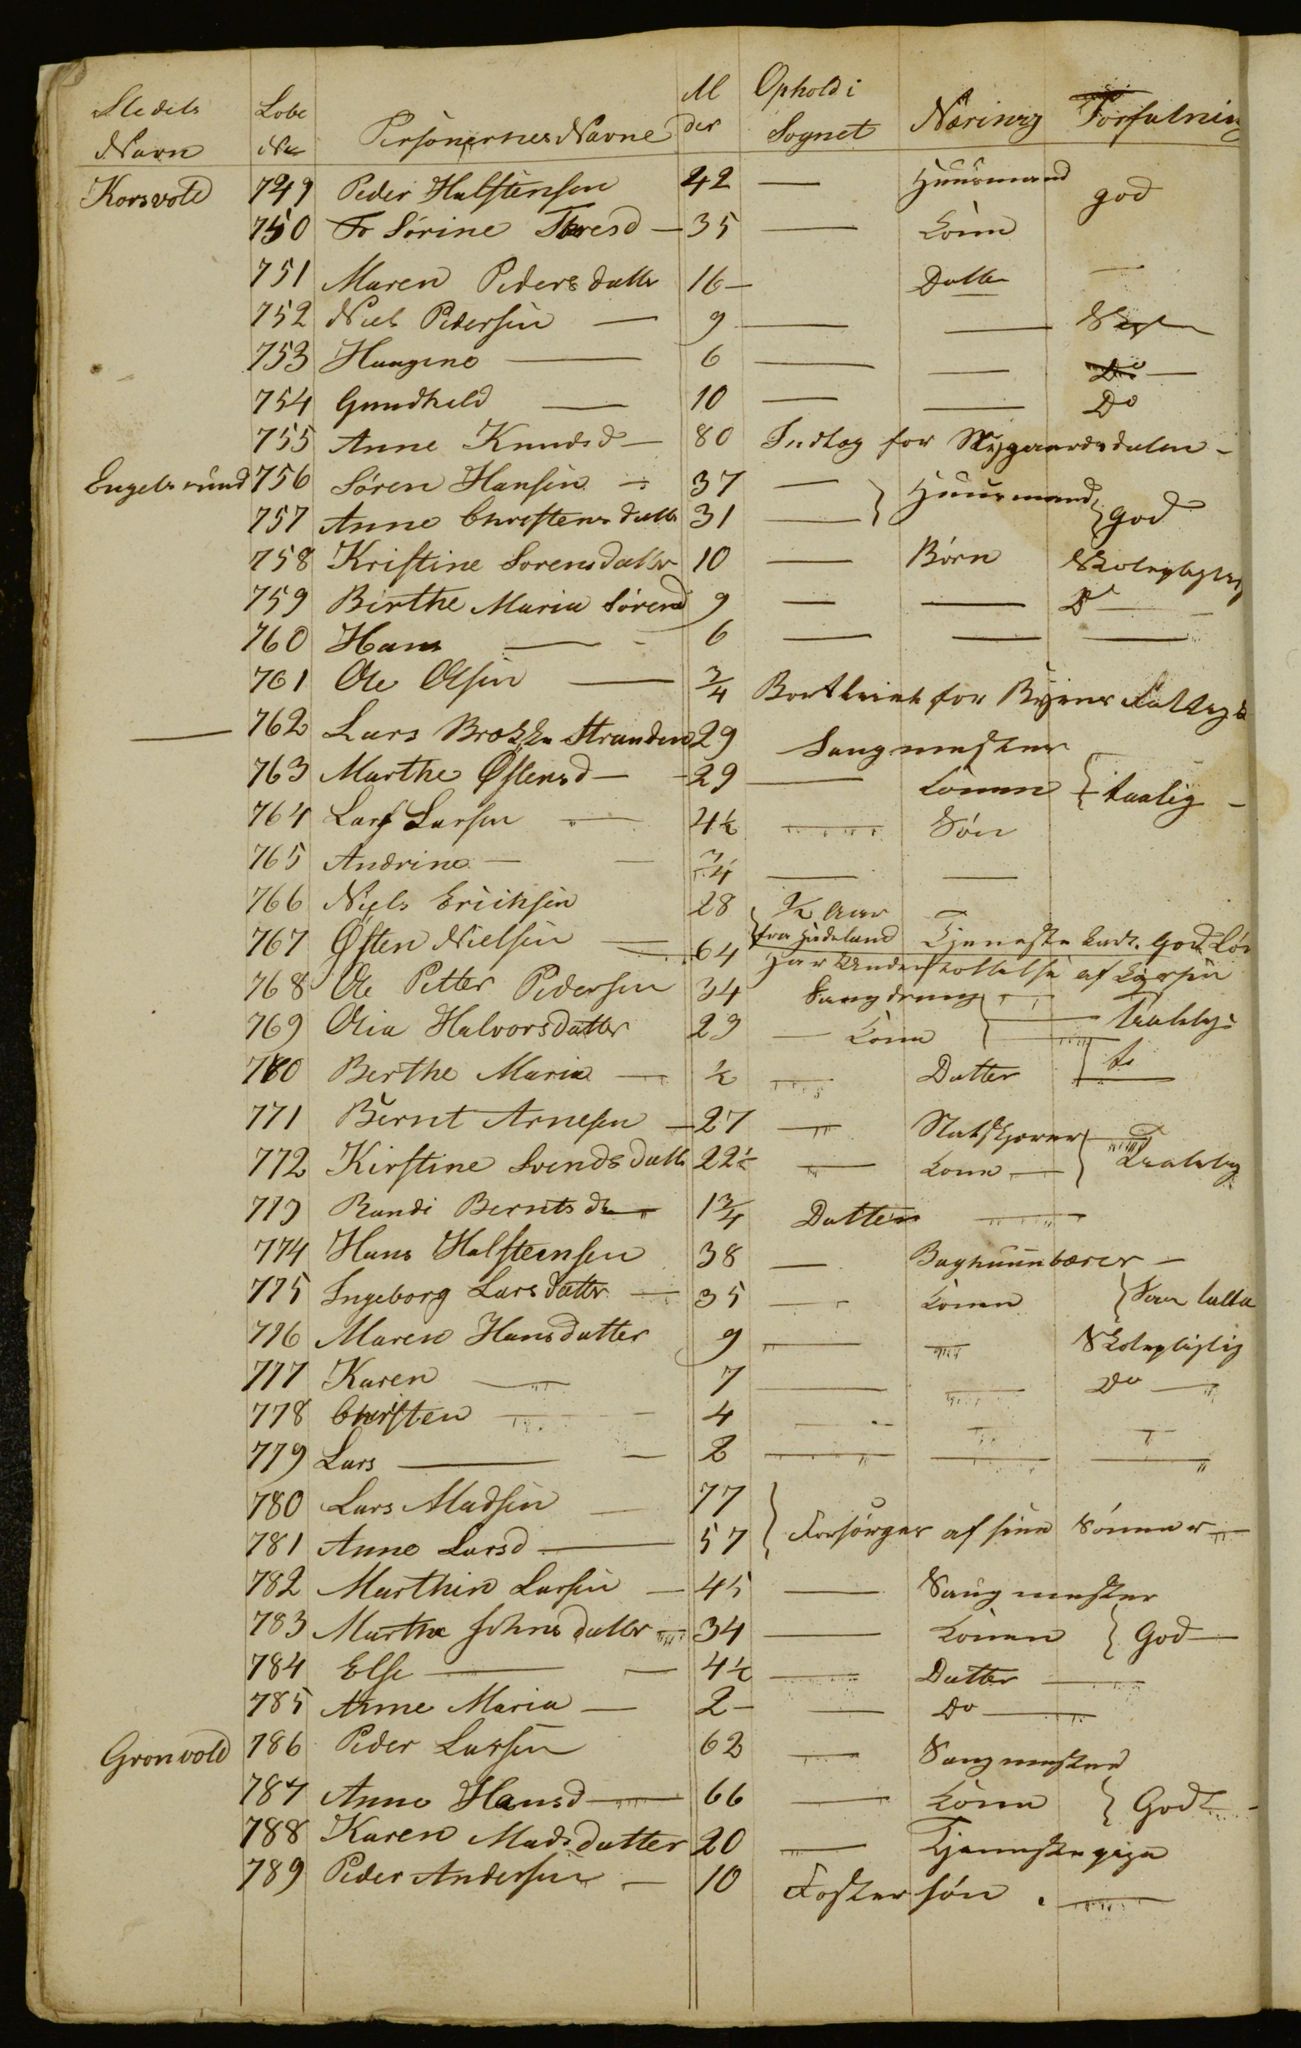 Stedets Navn Lobe No Personernes Navne Alder Ophold i Sognet Næring Forfatning
Korsvold 749 Peder Halstensen 42 — Huusmand god
750 Fr Sörine Thoresd — 35 — Kone
751 Maren Pedersdatter 16 — Datter —
752 Niels Pedersen — 9 — —
753 Haagine — 6 — — Do —
754 Gundhild — 10 — — Do
755 Anne Knudsd — 80 Indlag for Nygaardsdalen —
Engelsrund 756 Sören Hansen 37 — Huusmand god
757 Anne Christensdatter 31 —
758 Kristine Sorensdatter 10 — Börn Skolepligtig
759 Birthe Maria Sörensd 9 — — Do
760 Hans — 6 — — —
761 Ole Olsen — 3/4 for Byens Fattige
— 762 Lars Brække Stranden 29 Saugmester
763 Marthe Östensd — 29 — Konen taalig —
764 Lars Larsen — 4½ — Sön
765 Andrine — 3/4 — —
766 Niels Erichsen 28 ½ Aar —
767 Östen Nielsen — 64 fra Hedeland Tjeneste god
768 Ole Petter Pedersen 34 Har Understöttelse af Saugdreng
769 Olia Halvorsdatter 23 — Kone — Taalelig
780 Berthe Maria — ½ — Datter do
771 Bernt Arnesen — 27 —
772 Kirstine Svendsdatter 22½ — Kone — Taalelig
773 Randi Berntsdr 1¾ Datter —
774 Hans Halsteensen 38 — Baghuunbærer —
775 Ingeborg Larsdatter — 35 — Konen
776 Maren Hansdatter 9 — — Skolepligtig
777 Karen — 7 — — Do —
778 Christen — 4 — — —
779 Lars — 2 — — —
780 Lars Madsen — 77
781 Anne Larsd — 57 Forsörges af sine Sönner —
782 Marthin Larsen — 45 — Saugmester
783 Marthe Johnsdatter 34 — Konen God —
784 Else — 4½ — Datter —
785 Anne Maria — 2 — — Do —
Gronvold 786 Peder Larsen 62 — Saugmester
787 Anne Hansd — 66 — Kone Godt —
788 Karen Madsdatter 20 — Tjenestepige
789 Peder Andersen — 10 Fostersön . —